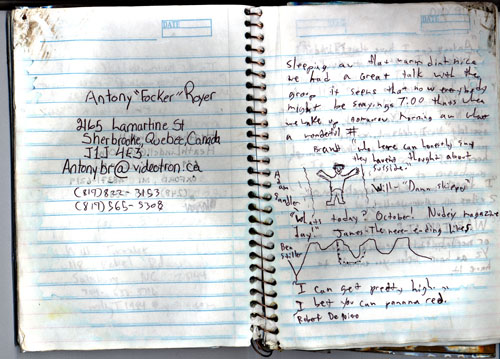 DATE
Antony "Focker" Royer
2165 Lamartine St
Sherbrooke, Quebec, Canada
J1J 4E3
Antonybr@videotron.ca
(819) 822-3153
(819) 565-5308
DATE
sleeping an that warm dint nice
we had a great talk with the
group it seems that now everybody
might be saying 7:00 thats when
we wake up tomorrow morning aw what
a wonderful #
Brandt "who here can honestly say
they haven't thought about
suiside."
Adam
Sandler
Will- "Damn skipper"
"Whats today? October! Nudey magazine
day!" James- The never-ending lines
Ben
Stiller
I can get pretty high.
I bet you can panama red.
Robert De Niro